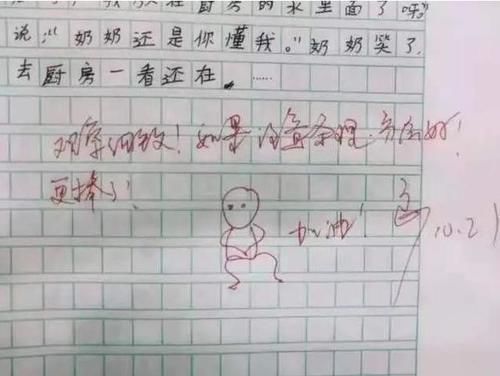 在厨房的水里面了呀"
说:"奶奶还是你懂我。"奶奶笑了
去厨房一看还在。……
观察细致!如果注意条理,分段好!
更棒了!
加油!
10.21